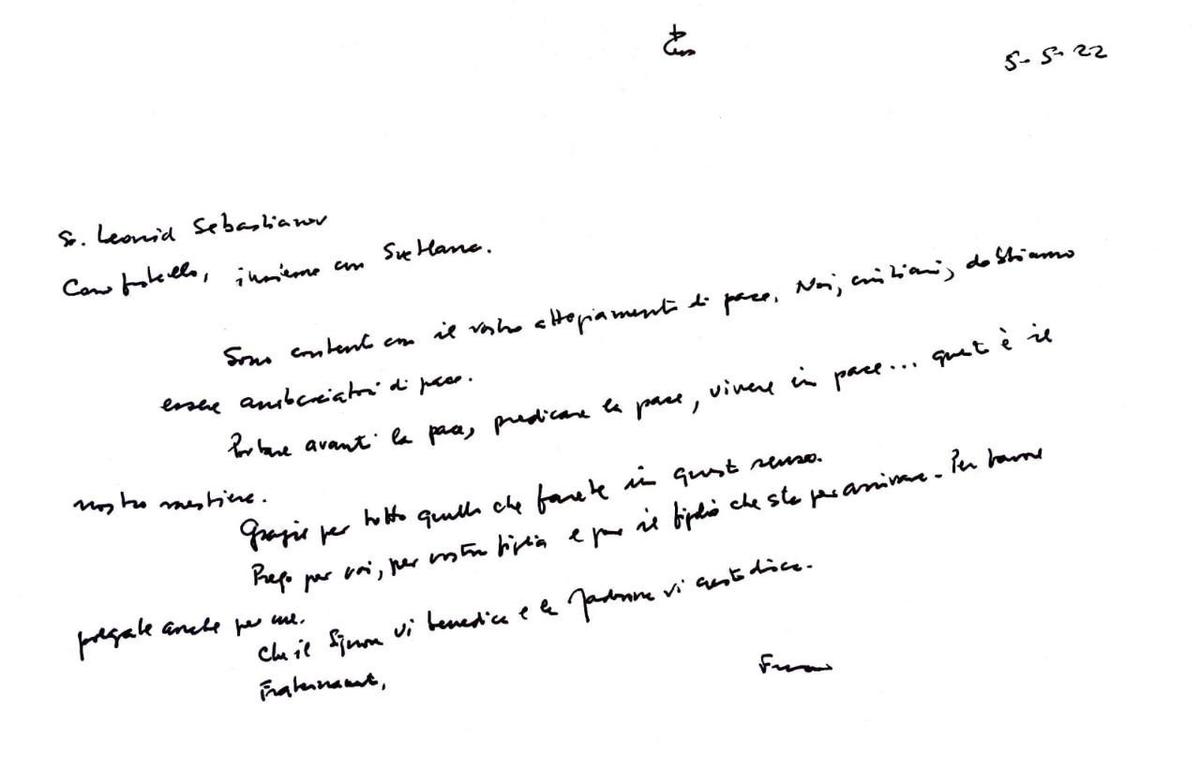 5-5-22
Sr. Leonid Sebastianov
Caro fratello, insieme con Svetlana.
Sono contento con il vostro atteggiamento di pace. Noi, cristiani, dobbiamo
essere ambasciatori di pace.
Portare avanti la pace, predicare la pace, vivere in pace... questo è il
nostro mestiere.
Grazie per tutto quello che farete in questo senso.
Prego per voi, per vostra figlia e per il figlio che sta per arrivare. Per favore
pregate anche per me.
Che il Signore vi benedica e la Madonna vi custodisca.
Fraternamente,